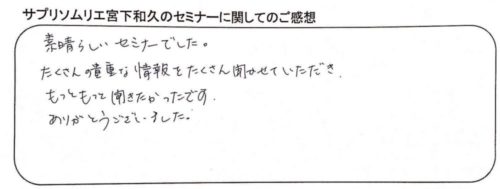 サプリソムリエ宮下和久のセミナーに関してのご感想
素晴らしいセミナーでした。
たくさんの貴重な情報をたくさん聞かせていただき、
もっともっと聞きたかったです。
ありがとうございました。